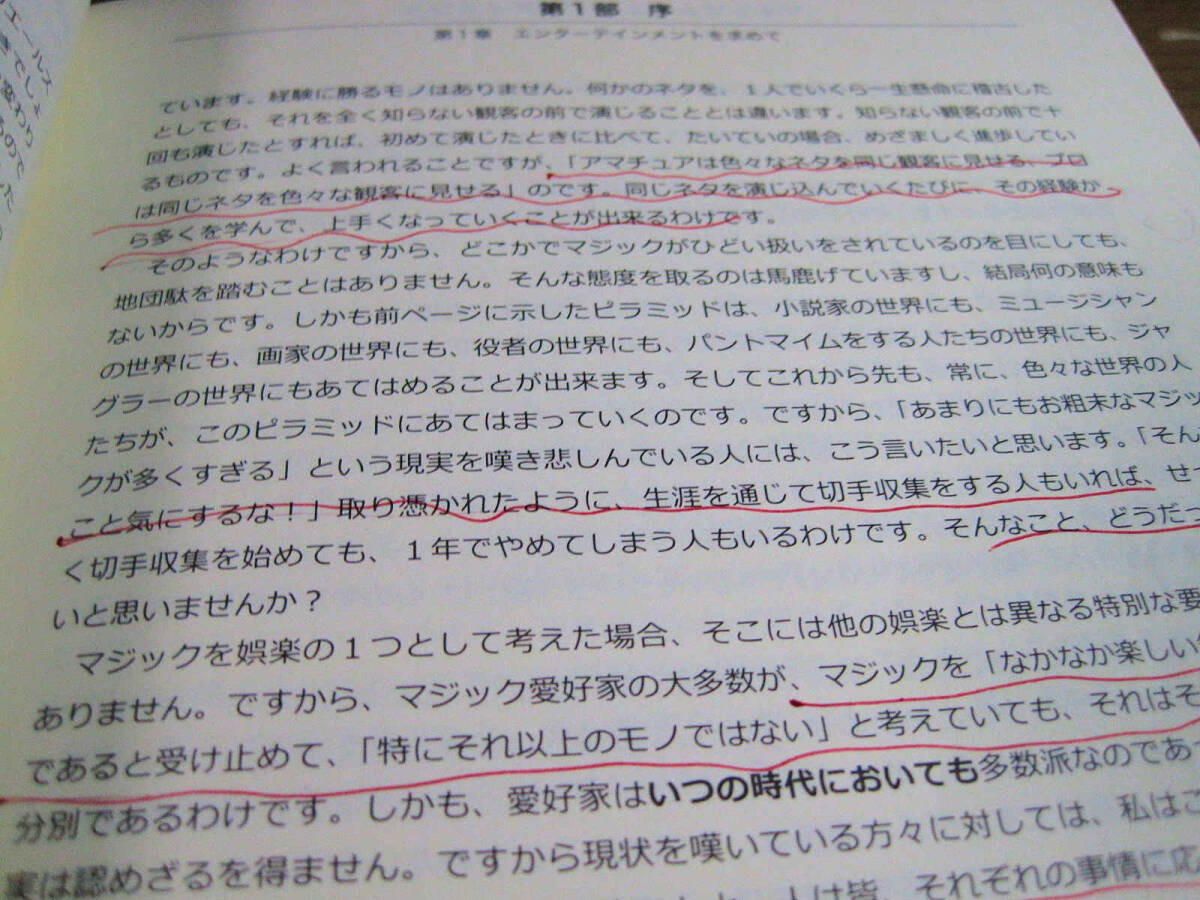 第1部 序
第1章 エンターテインメントを求めて
ています。経験に勝るモノはありません。何かのネタを、1人でいくら一生懸命に稽古した
としても、それを全く知らない観客の前で演じることとは違います。知らない観客の前で十
回も演じたとすれば、初めて演じたときに比べて、たいていの場合、めざましく進歩してい
るものです。よく言われることですが、「アマチュアは色々なネタを同じ観客に見せる、プロ
は同じネタを色々な観客に見せる」のです。同じネタを演じ込んでいくたびに、その経験か
ら多くを学んで、上手くなっていくことが出来るわけです。
そのようなわけですから、どこかでマジックがひどい扱いをされているのを目にしても、
地団駄を踏むことはありません。そんな態度を取るのは馬鹿げていますし、結局何の意味も
ないからです。しかも前ページに示したピラミッドは、小説家の世界にも、ミュージシャン
の世界にも、画家の世界にも、役者の世界にも、パントマイムをする人たちの世界にも、ジャ
グラーの世界にもあてはめることが出来ます。そしてこれから先も、常に、色々な世界の人
たちが、このピラミッドにあてはまっていくのです。ですから、「あまりにもお粗末なマジッ
クが多くすぎる」という現実を嘆き悲しんでいる人には、こう言いたいと思います。「そん
こと気にするな!」取り憑かれたように、生涯を通じて切手収集をする人もいれば、せっ
く切手収集を始めても、1年でやめてしまう人もいるわけです。そんなこと、どうだっ
いと思いませんか?
マジックを娯楽の1つとして考えた場合、そこには他の娯楽とは異なる特別な要
ありません。ですから、マジック愛好家の大多数が、マジックを「なかなか楽しい
であると受け止めて、「特にそれ以上のモノではない」と考えていても、それはそ
分別であるわけです。しかも、愛好家はいつの時代においても多数派なのであ
実は認めざるを得ません。ですから現状を嘆いている方々に対しては、私はこ
人は皆、それぞれの事情に応